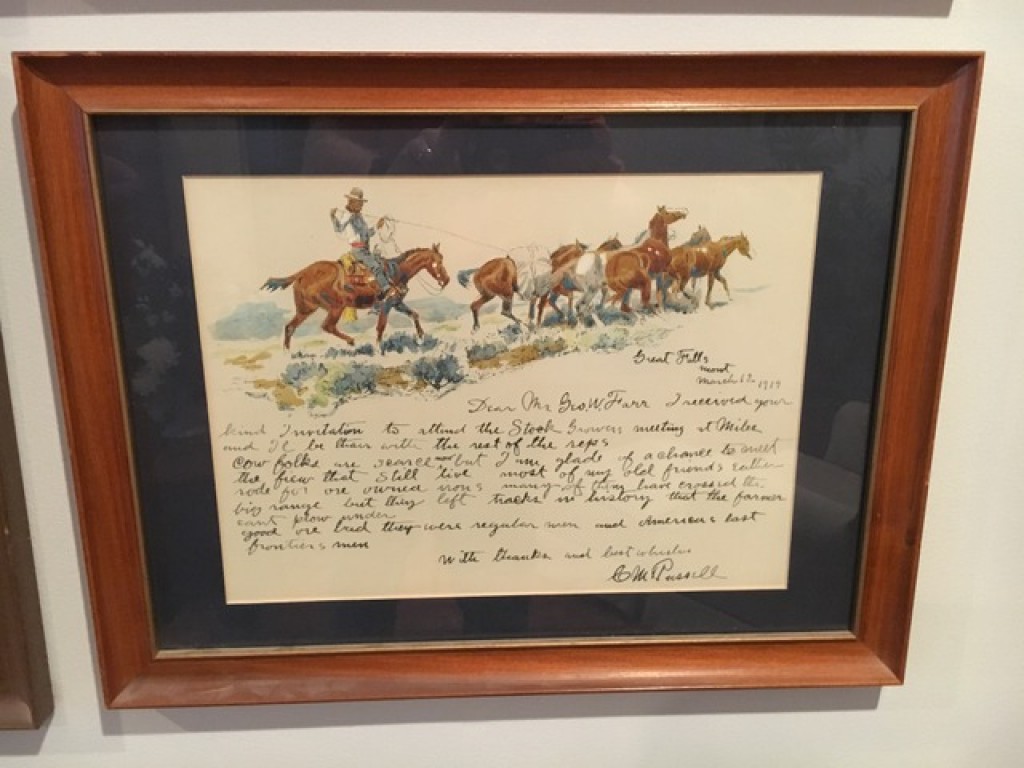 Great Falls
Mont
March 12 1919
Dear Mr Geo. W. Farr I received your
kind Invitation to attend the Stock Growers meeting at Miles
and I'l be thair with the rest of the reps
Cow folks are scarce now but I am glade of a chance to meet
the fiew that still live most of my old friends eather
rode for ore owned irons many of them have crossed the
big range but they left tracks in history that the farmer
cant plow under
good ore bad they were regular men and Americas last
frontiers men
With thanks and best whishes
C M Russell